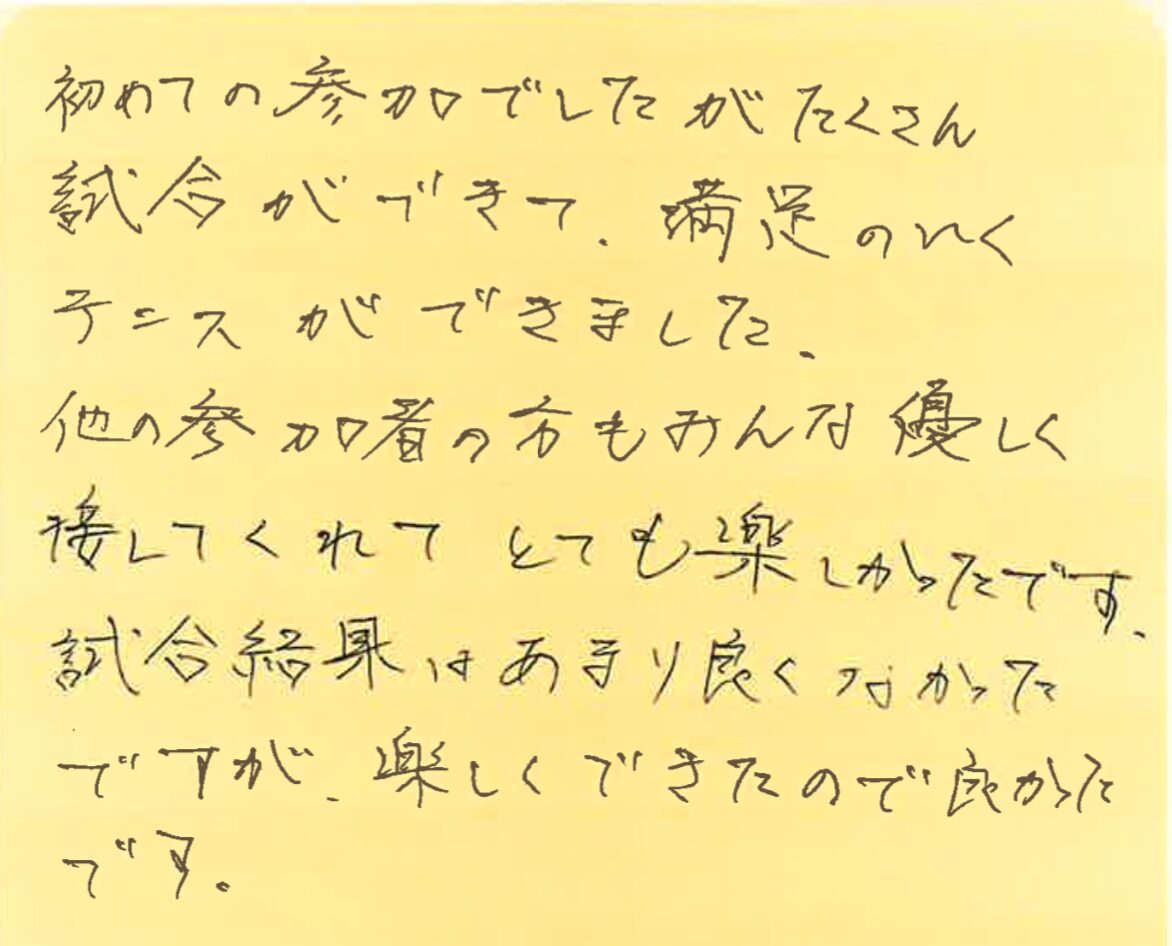 初めての参加でしたがたくさん
試合ができて、満足のいく
テニスができました。
他の参加者の方もみんな優しく
接してくれてとても楽しかったです。
試合結果はあまり良くなかった
ですが、楽しくできたので良かった
です。